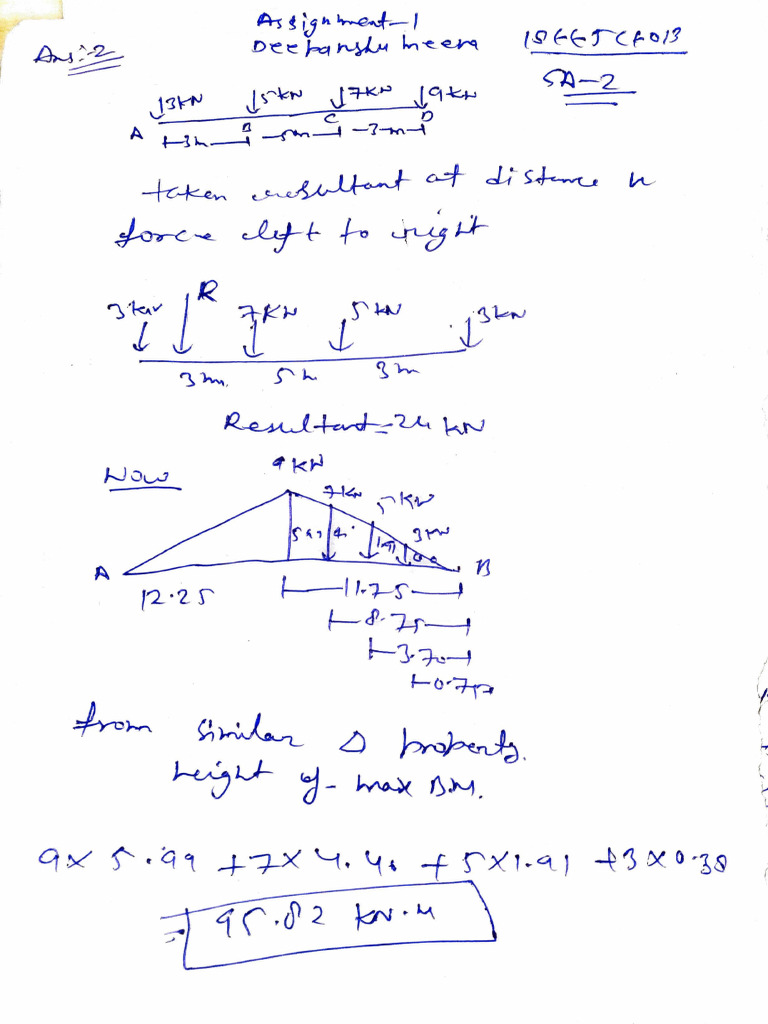 Assignment-1
Ans:-2 Deepanshu meena 18EE5CE013
SA-2
↓3KN ↓5KN ↓7KN ↓9KN
A B C D
3m 5m 3m
taken resultant at distance x
force left to right
3KN R 7KN 5KN 3KN
3m 5m 3m
Resultant = 24 KN
Now 9KN
7KN 5KN 3KN
A B
12.25 11.75
8.75
3.70
from similar △ property.
height of max B.M.
9×5.99 +7×4.46 +5×1.91 +3×0.38
= 95.82 KN.M